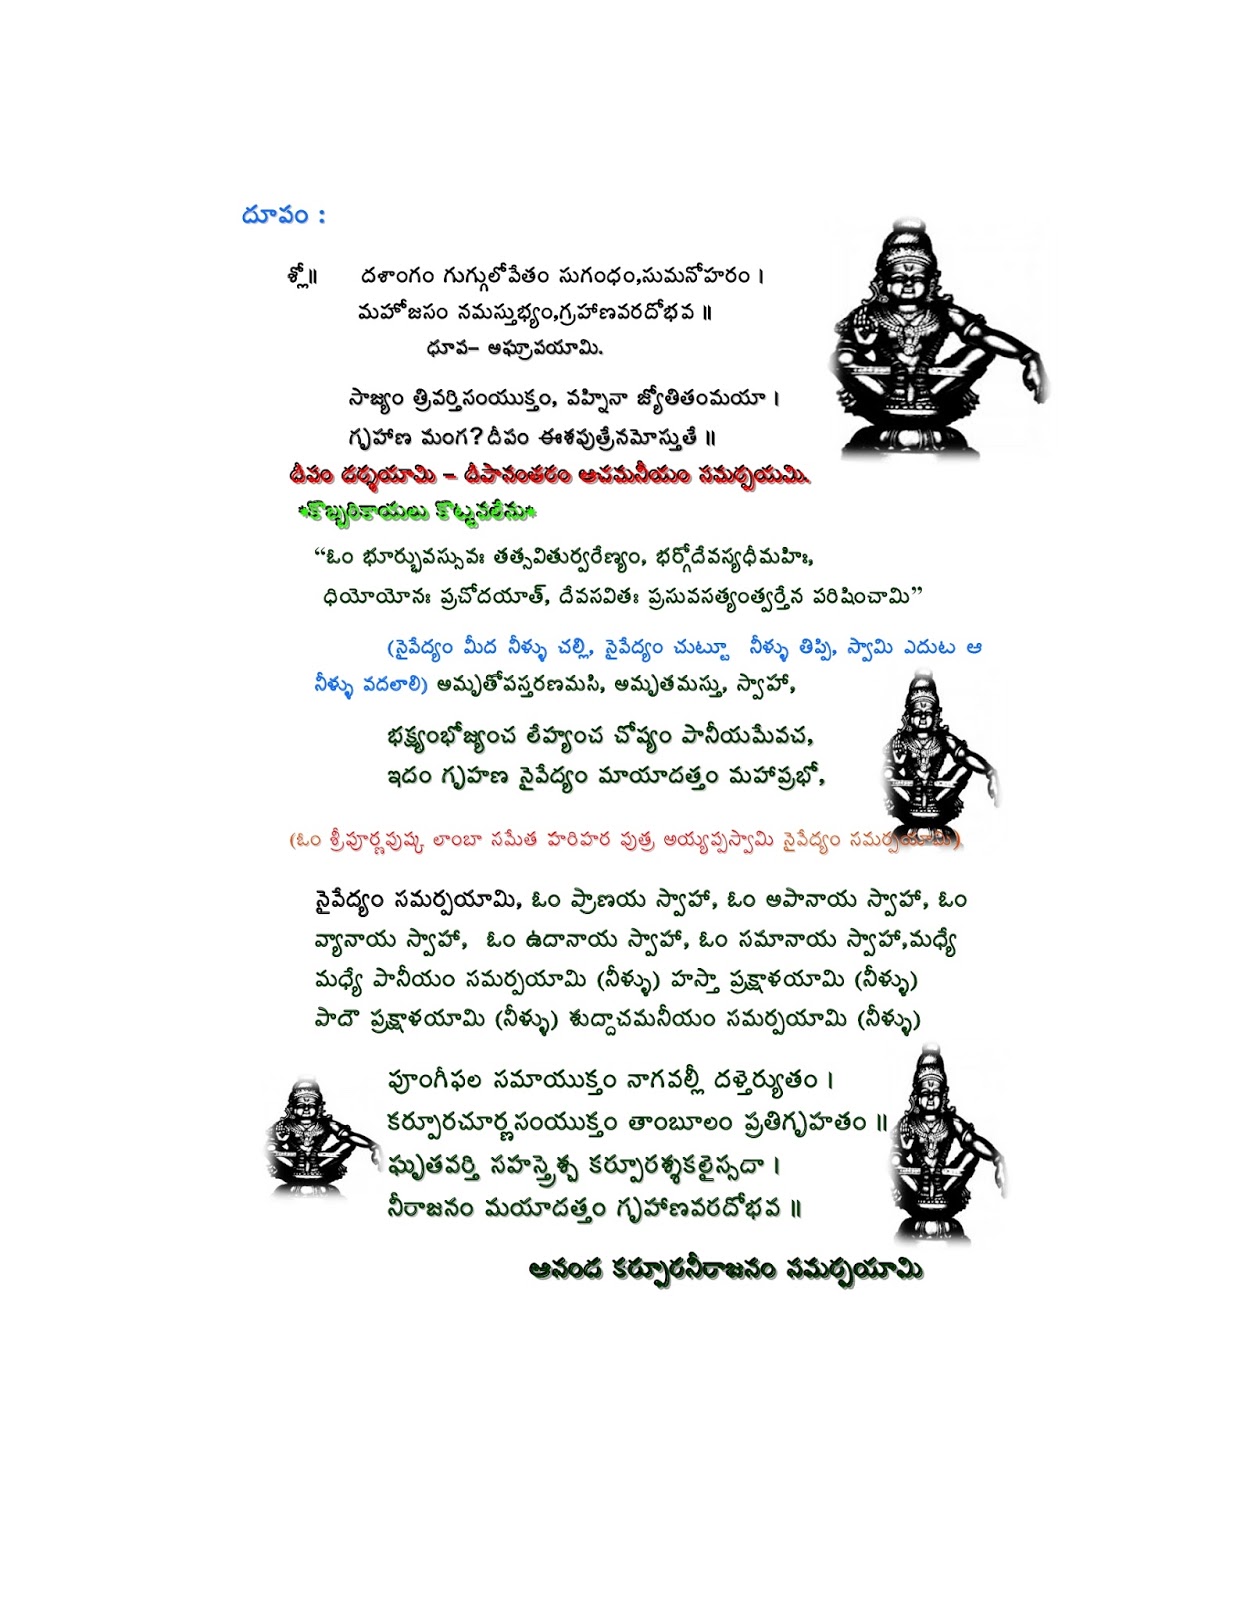 దూపం :
శ్లో॥ దశాంగం గుగ్గులోపేతం సుగంధం,సుమనోహరం ।
మహోజసం నమస్తుభ్యం,గ్రహాణవరదోభవ ॥
ధూవ– అఘ్రావయామి.
సాజ్యం త్రివర్తిసంయుక్తం, వహ్నినా జ్యోతితంమయా ।
గృహాణ మంగ?దీపం ఈశపుత్రేనమోస్తుతే ॥
దీపం దర్శయామి – దీపానంతరం ఆచమనీయం సమర్పయమి.
*కొబ్బరికాయలు కొట్టవలేను*
“ఓం భూర్భువస్సువః తత్సవితుర్వరేణ్యం, భర్గోదేవస్యధీమహిః,
ధియోయోనః ప్రచోదయాత్, దేవసవితః ప్రసువసత్యంత్వర్తేన పరిషించామి”
(నైవేద్యం మీద నీళ్ళు చల్లి, నైవేద్యం చుట్టూ నీళ్ళు తిప్పి, స్వామి ఎదుట ఆ
నీళ్ళు వదలాలి) అమృతోపస్తరణమసి, అమృతమస్తు, స్వాహా,
భక్ష్యంభోజ్యంచ లేహ్యంచ చోష్యం పానీయమేవచ,
ఇదం గృహణ నైవేద్యం మాయాదత్తం మహాప్రభో,
(ఓం శ్రీపూర్ణపుష్క లాంబా సమేత హరిహర పుత్ర అయ్యప్పస్వామి నైవేద్యం సమర్పయామి)
నైవేద్యం సమర్పయామి, ఓం ప్రాణయ స్వాహా, ఓం అపానాయ స్వాహా, ఓం
వ్యానాయ స్వాహా, ఓం ఉదానాయ స్వాహా, ఓం సమానాయ స్వాహా,మధ్యే
మధ్యే పానీయం సమర్పయామి (నీళ్ళు) హస్తా ప్రక్షాళయామి (నీళ్ళు)
పాదౌ ప్రక్షాళయామి (నీళ్ళు) శుద్దాచమనీయం సమర్పయామి (నీళ్ళు)
పూంగీఫల సమాయుక్తం నాగవల్లీ దళ్తెర్యుతం ।
కర్పూరచూర్ణసంయుక్తం తాంబూలం ప్రతిగృహతం ॥
ఘృతవర్తి సహస్త్రైశ్చ కర్పూరశ్శకలైస్సదా ।
నీరాజనం మయాదత్తం గృహాణవరదోభవ ॥
ఆనంద కర్పూరనీరాజనం సమర్పయామి